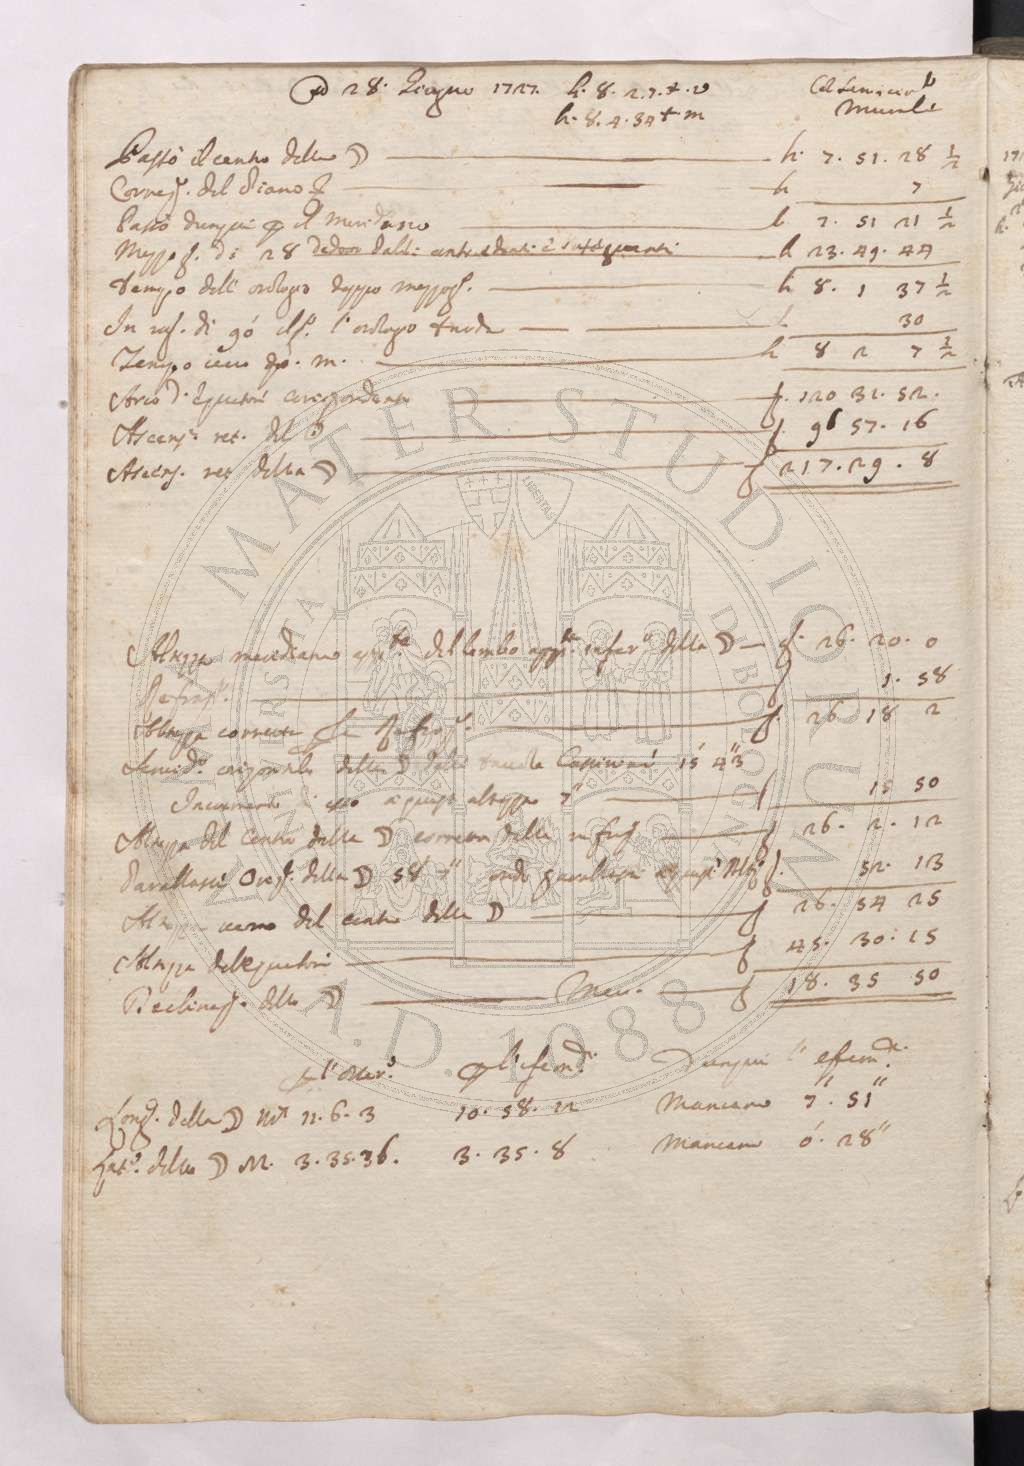 28. Giugno 1727. h. 8. 2. 7. t. v
h. 8. 4. 34 t. m
Col Semicir.
Murale
Passò il centro della ☽ h. 7. 51. 28 ½
Correz. del Piano h 7
Passò dunque p il Meridiano h 7. 51 21 ½
Mezzog. di 28 h 23. 49. 44
Tempo dell' orologio doppo mezzog. h 8. 1 37 ½
In rag. di l' orologio tarda h 30
Tempo vero dp. m. h 8 2 7 ½
Arco d' Equatore corrispondente g. 120 31. 52.
Ascens. ret. del g. 96 57. 16
Ascens. ret della ☽ g 217. 29. 8
Altezza meridiana del lembo infer. della ☽ g. 26. 20. 0
Refraz. 1. 58
Altezza corretta Refraz. g. 26 18 2
Semid. orizontale della ☽ dalle tavole Cassiniane 15' 43"
Incremento di esso a questa altezza 7" 15 50
Altezza del Centro della ☽ corretta dalla refraz. g 26. 2. 12
Parallasse Oriz. della ☽ 58' 7" onde parallasse a quest' Alt. g. 52. 13
Altezza vera del centro della ☽ g 26. 54 25
Altezza dell'equatore g 45. 30. 15
Declinaz. della ☽ Mer. g 18. 35 50
p l' osser. p l' efem. Dunque l' efem.
Long. della ☽ 11. 6. 3 10. 58. 12 Mancano 7' 51"
Lat. della ☽ M. 3. 35. 36. 3. 35. 8 Mancano 0'. 28"
ALMA MATER STUDIORUM
UNIVERSITÀ DI BOLOGNA
LIBERTAS
A.D. 1088